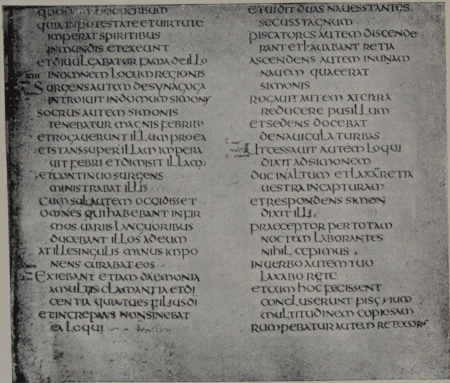 quod est hoc uerbum
quia in potestate et uirtute
imperat spiritibus
inmundis et exeunt
et diuulgabatur fama de illo
in omnem locum regionis
Surgens autem de synagoga
introiuit in domum simonis
Socrus autem simonis
tenebatur magnis febrib
et rogauerunt illum pro ea
et stans super illam impera
uit febri et dimisit illam
et continuo surgens
ministrabat illis
Cum sol autem occidisset
omnes qui habebant infir
mos uariis languoribus
ducebant illos ad eum
at ille singulis manus impo
nens curabat eos
Exiebant etiam daemonia
a multis clamantia et di
centia quia tu es filius di
et increpans non sinebat
ea loqui
et uidit duas naues stantes
secus stagnum
piscatores autem discende
rant et lauabant retia
ascendens autem in unam
nauem quae erat
simonis
rogauit autem a terra
reducere pusillum
et sedens docebat
de nauicula turbas
Ut cessauit autem loqui
dixit ad simonem
duc in altum et laxa retia
uestra in capturam
et respondens simon
dixit illi
praeceptor per totam
noctem laborantes
nihil cepimus
in uerbo autem tuo
laxabo rete
et cum hoc fecissent
concluserunt piscium
multitudinem copiosam
rumpebatur autem rete eor